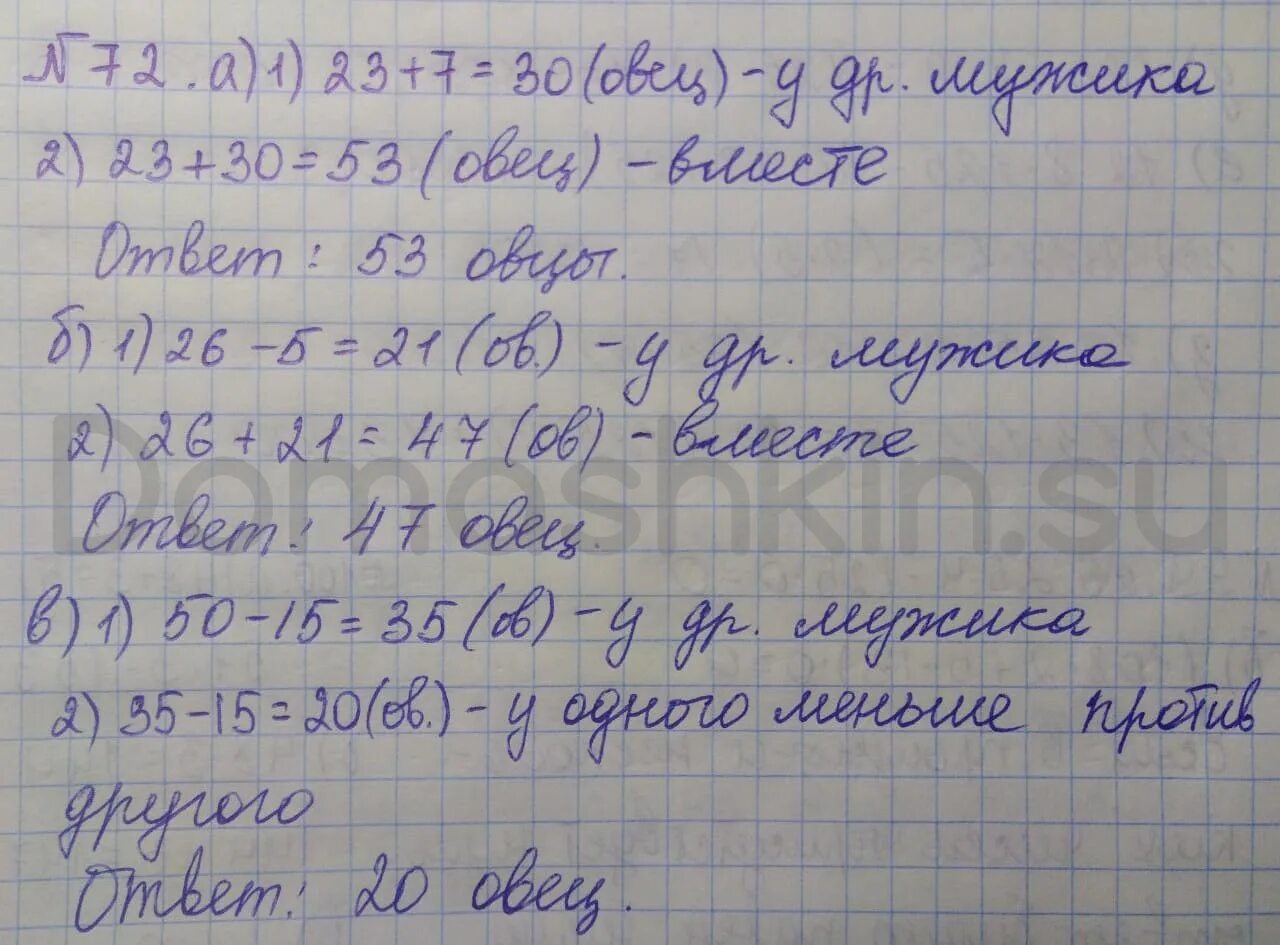 № 72. а) 1) 23+7=30 (овец) - у др. мужика
2) 23+30=53 (овец) - вместе
Ответ: 53 овцы.
б) 1) 26-5=21 (ов.) - у др. мужика
2) 26+21=47 (ов) - вместе
Ответ: 47 овец.
в) 1) 50-15=35 (ов) - у др. мужика
2) 35-15=20 (ов.) - у одного меньше против
другого
Ответ: 20 овец.
Domoshkin.su